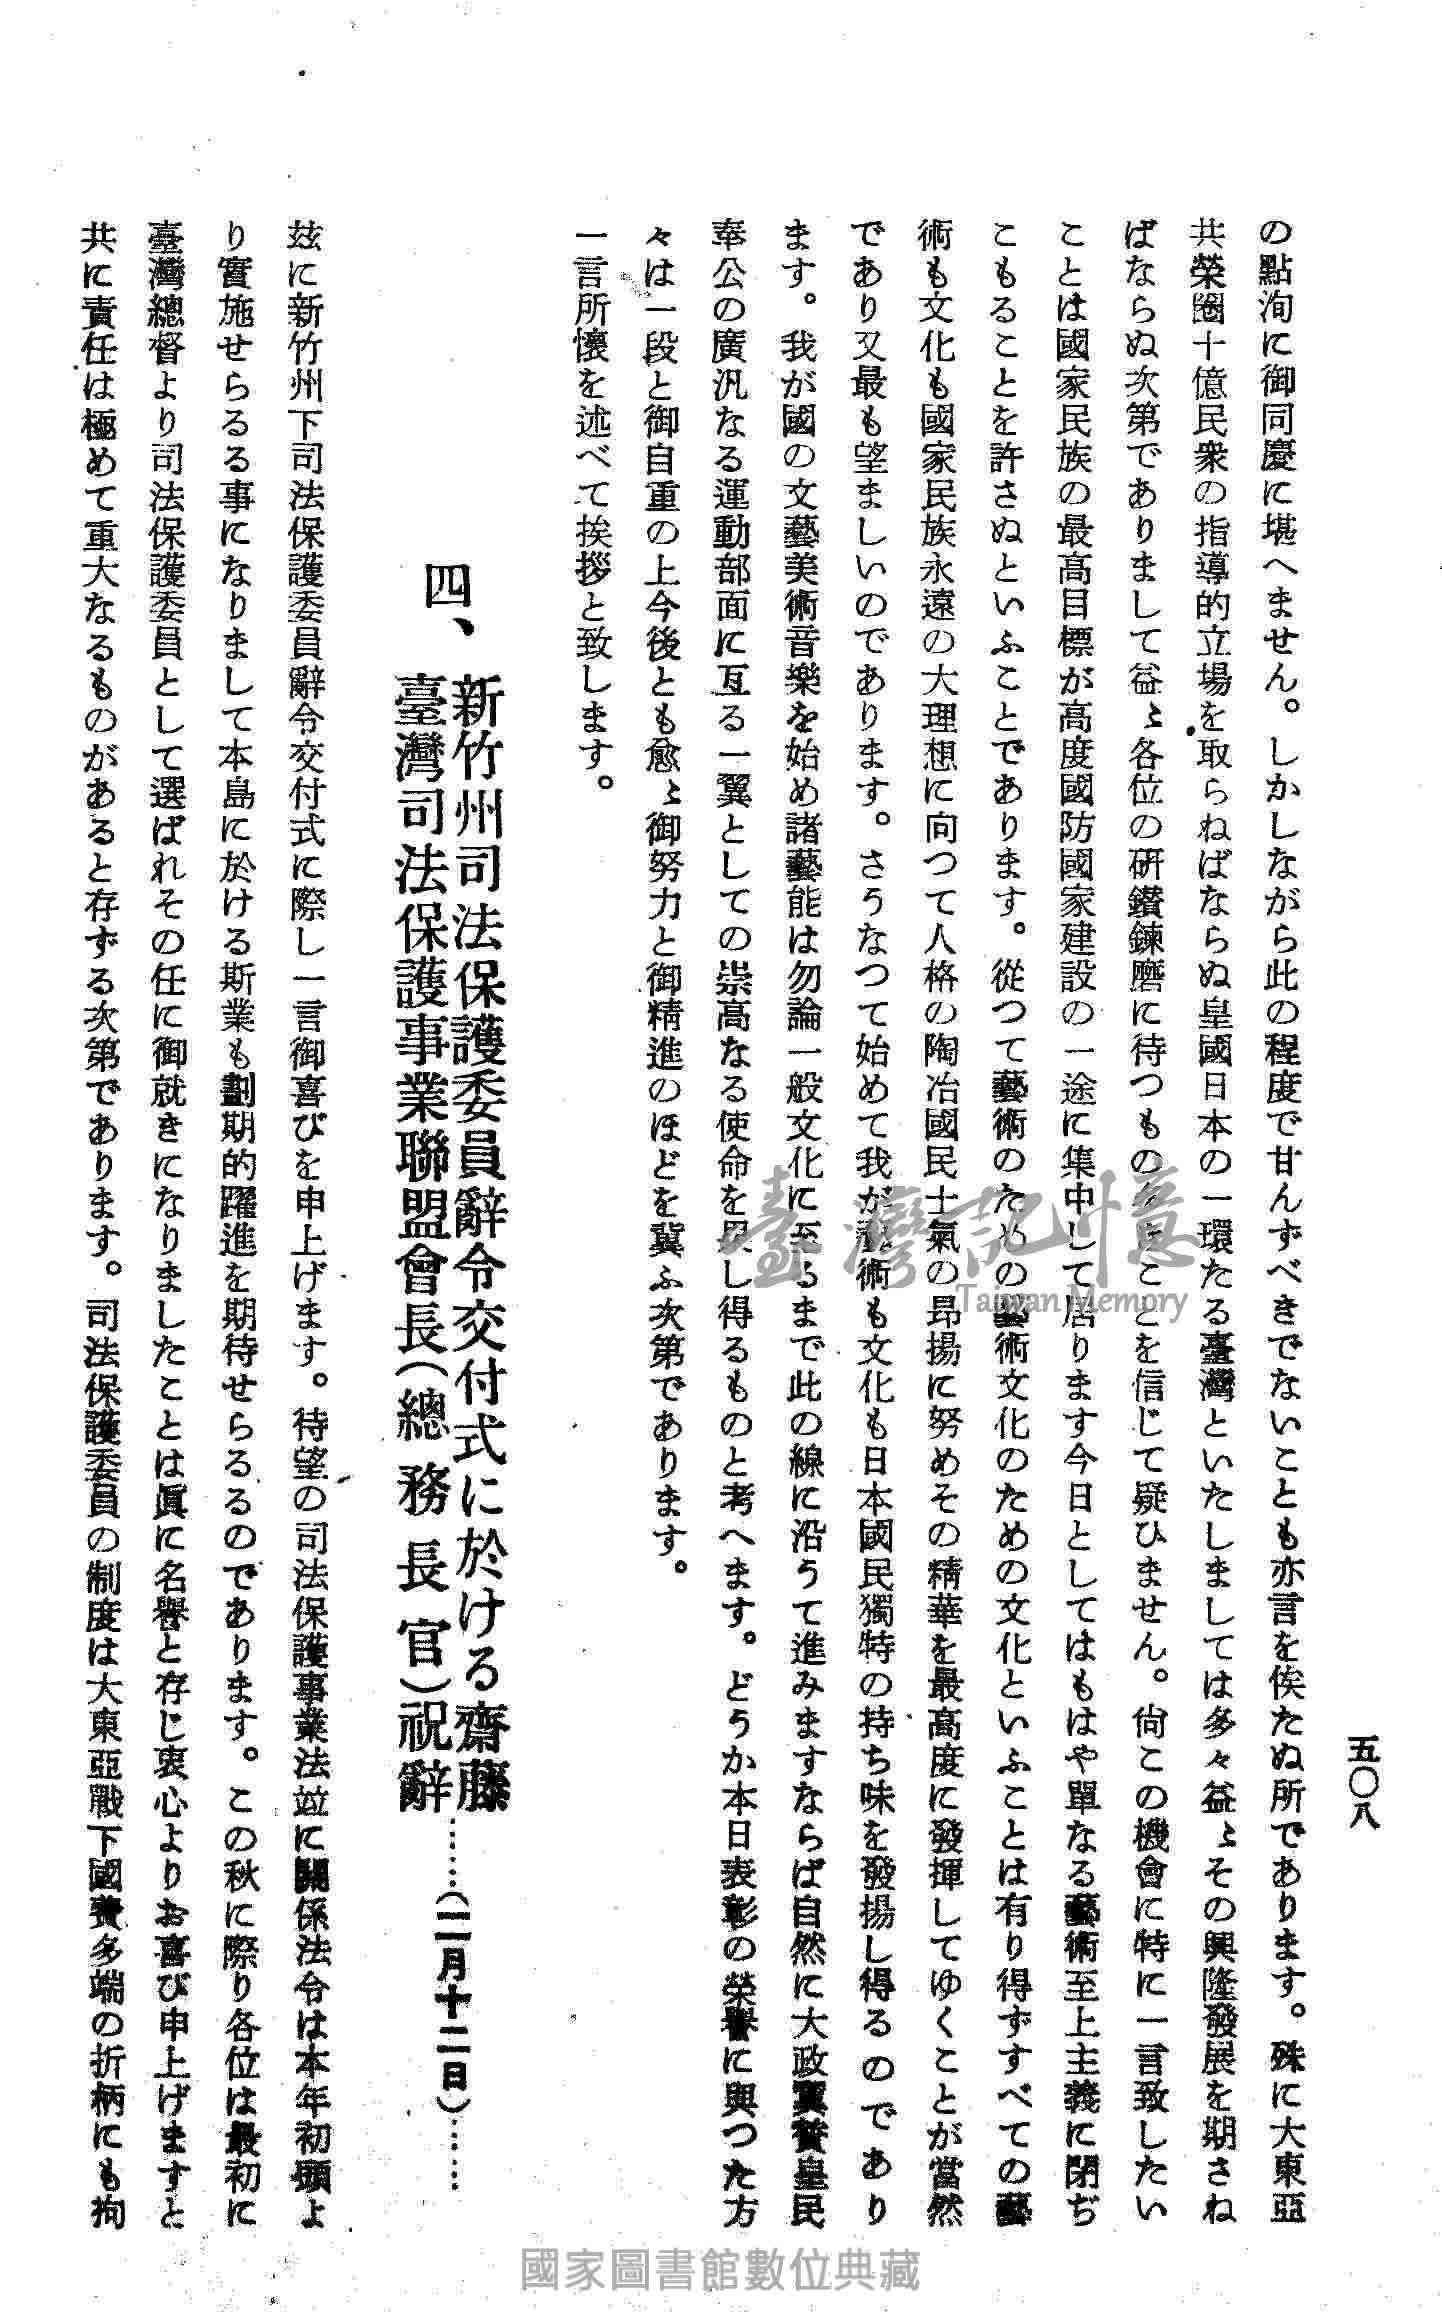 五〇八
の點洵に御同慶に堪へません。しかしながら此の程度で甘んずべきでないことも亦言を俟たぬ所であります。殊に大東亞
共榮圈十億民衆の指導的立場を取らねばならぬ皇國日本の一環たる臺灣といたしましては多々益〻その興隆發展を期さね
ばならぬ次第でありまして益〻各位の硏鑽鍊磨に待つもの多きことを信じて疑ひません。尙この機會に特に一言致したい
ことは國家民族の最高目標が高度國防國家建設の一途に集中して居ります今日としてはもはや單なる藝術至上主義に閉ぢ
こもることを許さぬといふことであります。從つて藝術のための藝術文化のための文化といふことは有り得ずすべての藝
術も文化も國家民族永遠の大理想に向つて人格の陶冶國民士氣の昂揚に努めその精華を最高度に發揮してゆくことが當然
であり又最も望ましいのであります。さうなつて始めて我が藝術も文化も日本國民獨特の持ち味を發揚し得るのであり
ます。我が國の文藝美術音樂を始め諸藝能は勿論一般文化に至るまで此の線に沿うて進みますならば自然に大政翼贊皇民
奉公の廣汎なる運動部面に亙る一翼としての崇高なる使命を果し得るものと考へます。どうか本日表彰の榮譽に與つた方
々は一段と御自重の上今後とも愈〻御努力と御精進のほどを冀ふ次第であります。
一言所懷を述べて挨拶と致します。
四、新竹州司法保護委員辭令交付式に於ける齋藤
臺灣司法保護事業聯盟會長(總務長官)祝辭……(二月十二日)……
玆に新竹州下司法保護委員辭令交付式に際し一言御喜びを申上げます。待望の司法保護事業法竝に關係法令は本年初頭よ
り實施せらるる事になりまして本島に於ける斯業も劃期的躍進を期待せらるるのであります。この秋に際り各位は最初に
臺灣總督より司法保護委員として選ばれその任に御就きになりましたことは眞に名譽と存じ衷心よりお喜び申上げますと
共に責任は極めて重大なるものがあると存ずる次第であります。司法保護委員の制度は大東亞戰下國費多端の折柄にも拘
臺灣記憶
Taiwan Memory
國家圖書館數位典藏